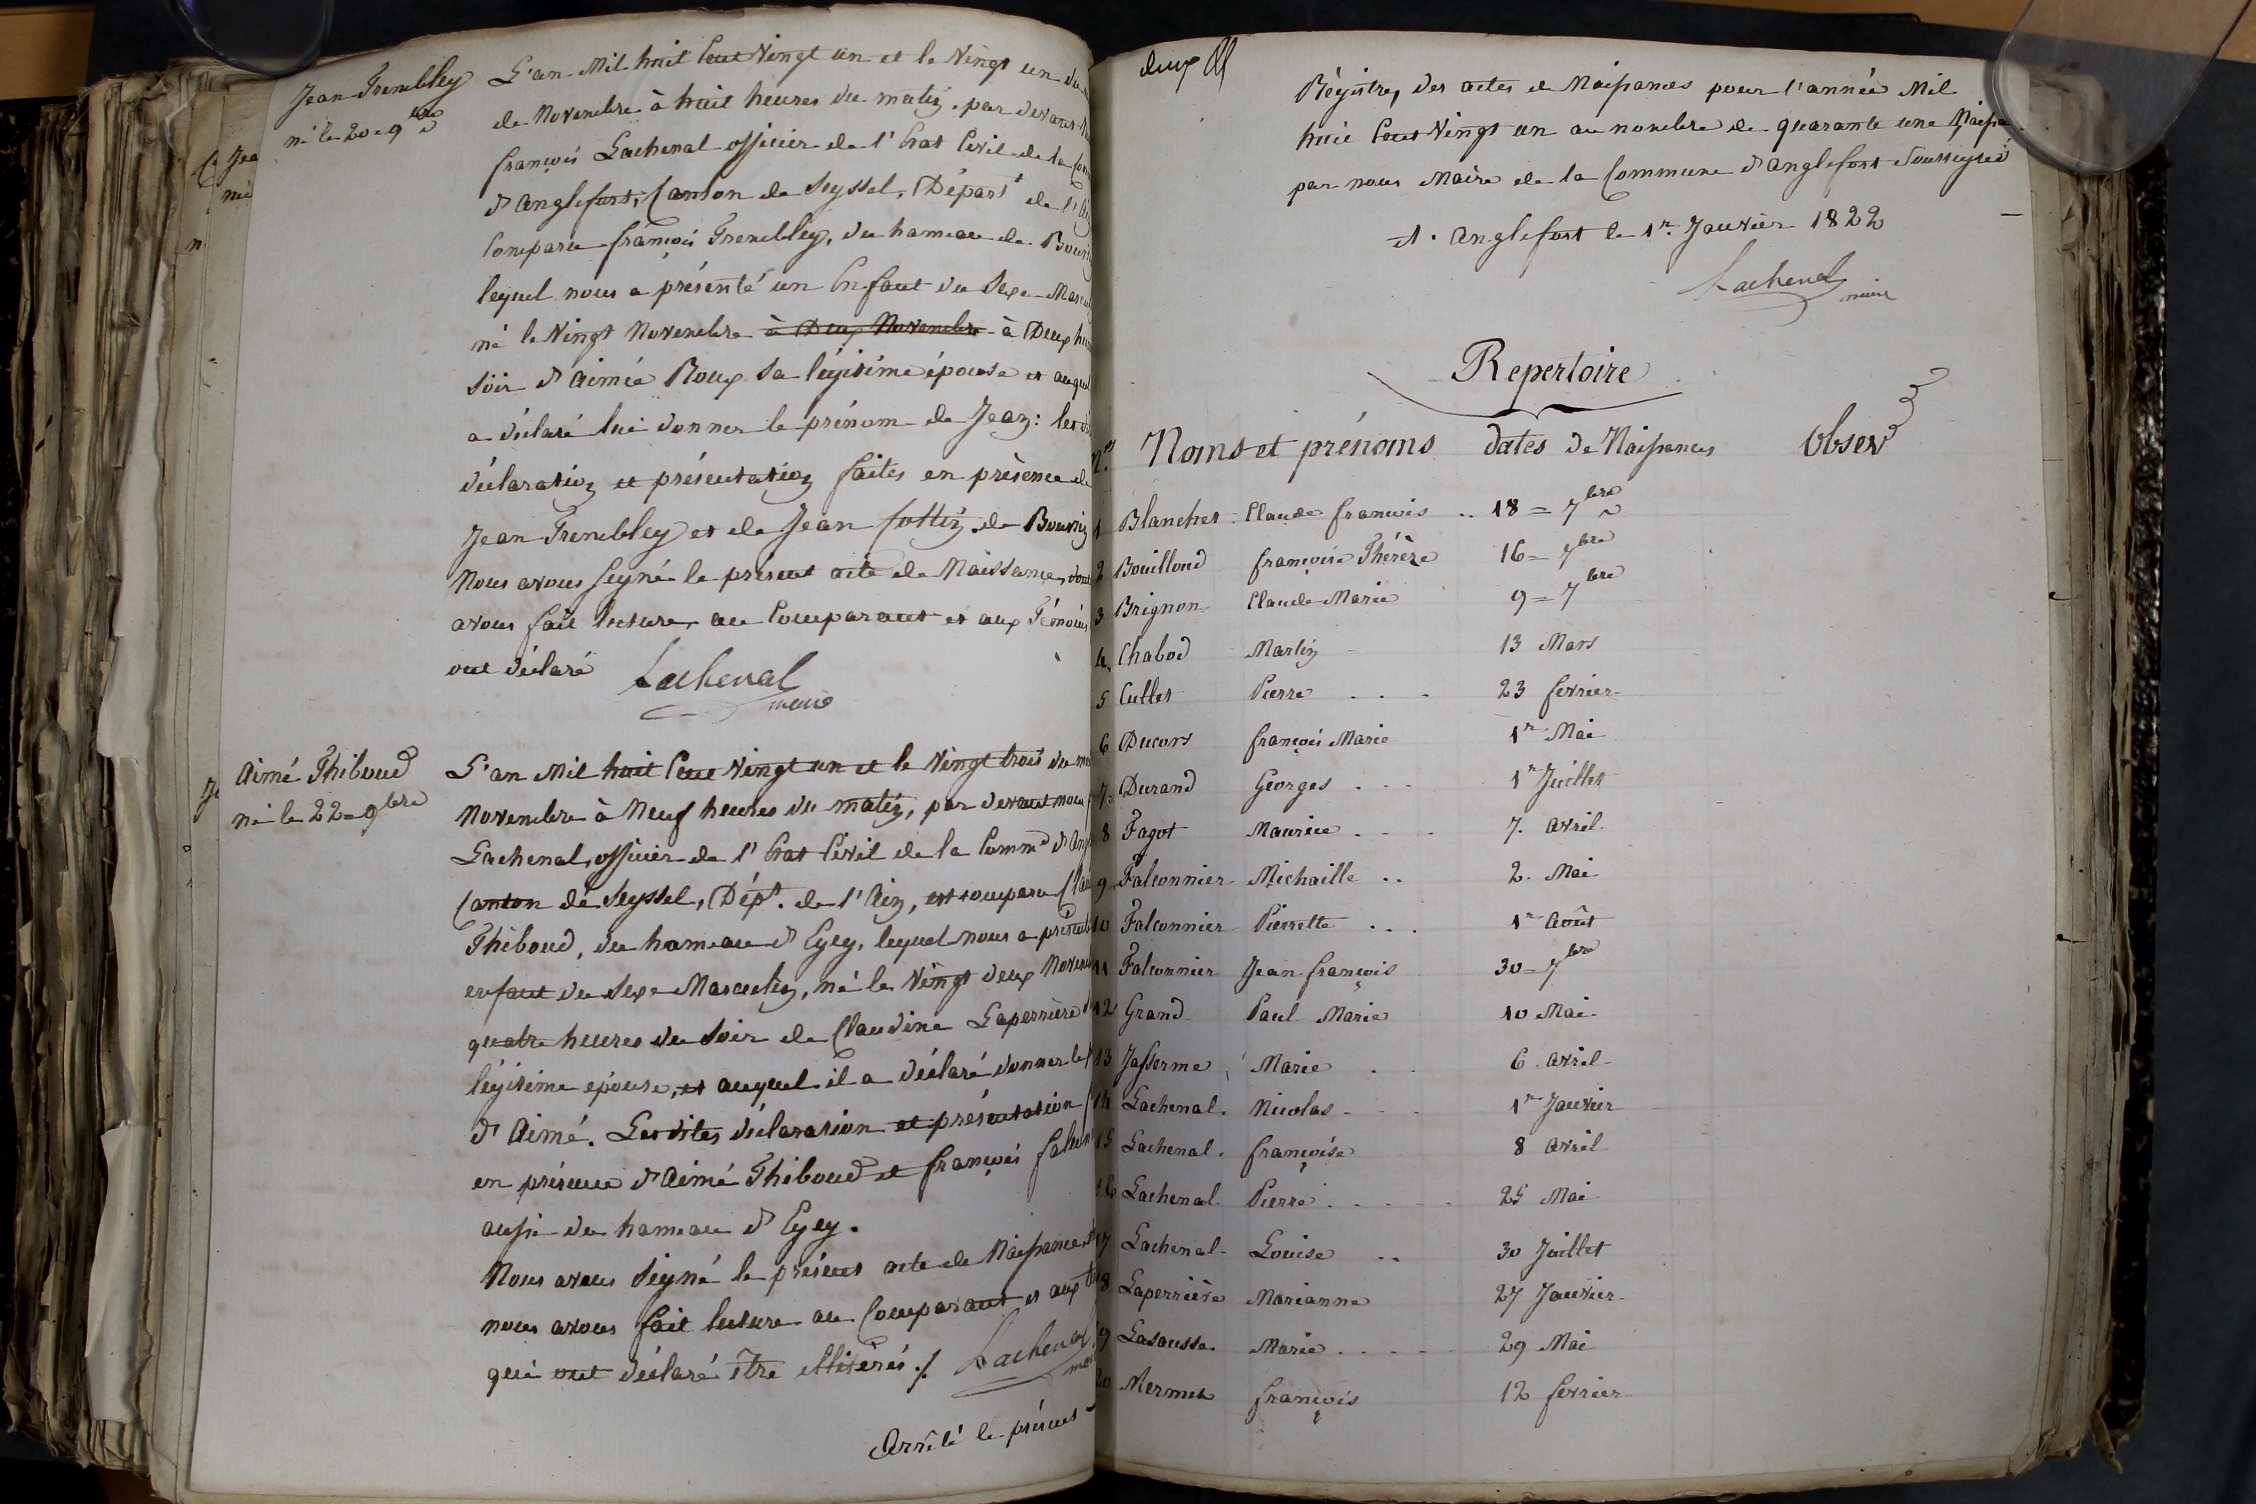 Jean Trembley
né le 20 = 9bre
L'an Mil huit Cent Vingt un et le Vingt un du
de Novembre à huit heures du matin. par devant
françois Lachenal officier de l'Etat Civil de la Com
d'anglefort, Canton de Seyssel, Départt de l'
Comparu françois Trembley, du hameau de
lequel nous a présenté un Enfant du Sexe Mascu
né le Vingt Novembre à Deux Novembre à Deux heu
soir d'aimée Roux sa légitime épouse et auquel
a déclaré lui donner le prénom de Jean: les
déclaration et présentation faites en présence de
Jean Trembley et de Jean Cottin de
Nous avons signé le présent acte de Naissance, dont
avons fait lecture au Comparant et aux Témoins
ont déclaré
Lachenal
maire
Aimé Thiboud
né le 22 = 9bre
L'an Mil huit Cent Vingt un et le Vingt trois du
Novembre à Neuf heures du matin, par devant nous
Lachenal, officier de l'Etat Civil de la Comm d'ang
Canton de Seyssel, Dépt. de l'Ain, est comparu Clau
Thiboud, du hameau d'Eyey, lequel nous a présenté
enfant du Sexe Masculin, né le Vingt deux Novem
quatre heures du soir de Claudine Laperrière
légitime épouse, et auquel il a déclaré donner le
d'Aimé. Lesdites déclaration et présentation
en présence d'Aimé Thiboud et françois falconn
aussi du hameau d'Eyey.
Nous avons signé le présent acte de Naissance,
nous avons fait lecture au Comparant et aux
qui ont déclaré être illitérés ./.
Lachenal
maire
Arrêté le présent
deux
Régistre, des actes de Naissances pour l'année Mil
huit Cent Vingt un au nombre de quarante une Naissa
par nous Maire de la Commune d'anglefort Soussigné
A. anglefort le 1r. Janvier 1822
Lachenal
maire
Repertoire
Nos Noms et prénoms dates de Naissances Observ
1 Blanchet Claude françois .. 18 = 7bre
2 Bouilloud françoise Thérèze 16 = 7bre
3 Brignon Claude Marie 9 = 7bre
4. Chabod Martin 13 Mars
5 Cullet Pierre 23 fevrier
6 Ducors françois Marie 1r Mai
7. Durand Georges 1r Juillet
8 Fagot Maurice 7. avril
9 Falconnier Michaille .. 2. Mai
10 Falconnier Pierrette 1r Août
11 Falconnier Jean françois 30 = 7bre
12 Grand Paul Marie 10 Mai
13 Jasserme Marie 6 avril
14 Lachenal. Nicolas 1r Janvier
15 Lachenal. françoise 8 avril
16 Lachenal Pierre 25 Mai
17 Lachenal Louise 30 Juillet
18 Laperrière Marianne 27 Janvier
19 Lasausse. Marie 29 Mai
20 Mermet françois 12 fevrier